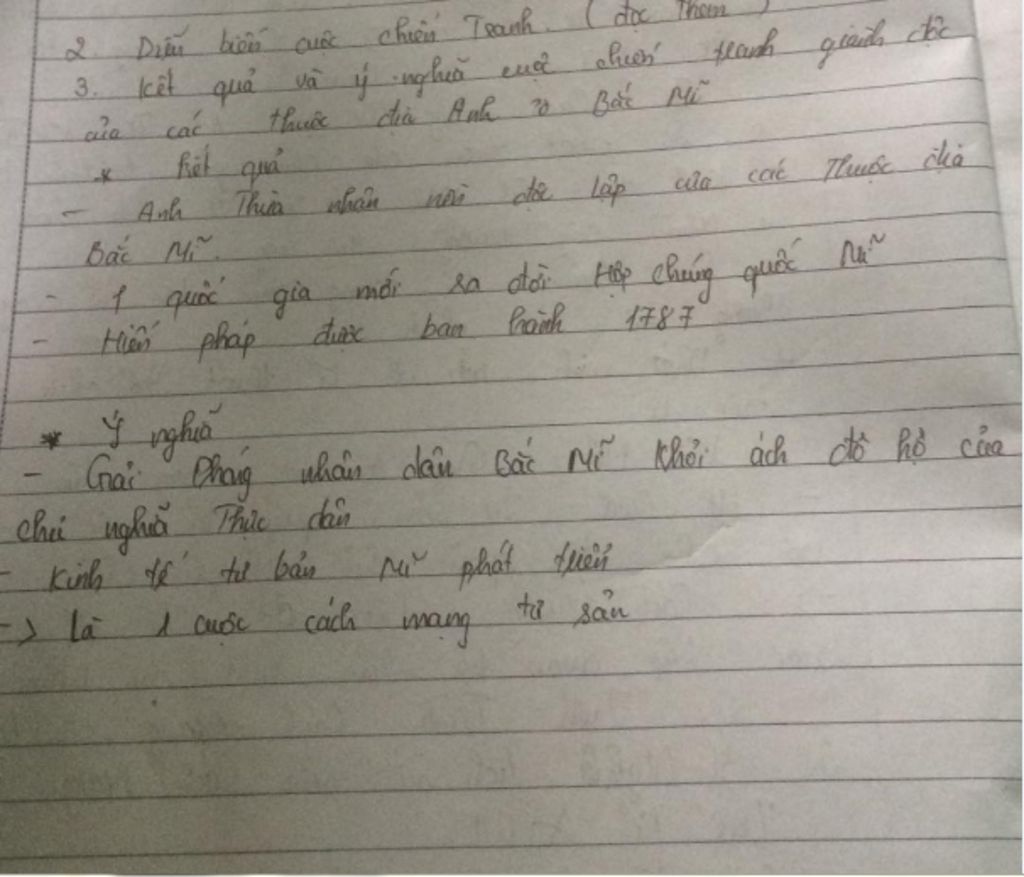 2. Diễn biến cuộc chiến Tranh. ( đọc Thêm )
3. Kết quả và ý nghĩa cuộc chiến tranh giành độc
của các thuộc địa Anh ở Bắc Mĩ
* Kết quả
- Anh Thừa nhận nền độc lập của các Thuộc địa
Bắc Mĩ.
- 1 quốc gia mới ra đời Hợp chúng quốc Mĩ
- Hiến pháp được ban hành 1787
* Ý nghĩa
- Giải Phóng nhân dân Bắc Mĩ khỏi ách đô hộ của
chủ nghĩa Thực dân
- Kinh tế tư bản Mĩ phát triển
-> Là 1 cuộc cách mạng tư sản